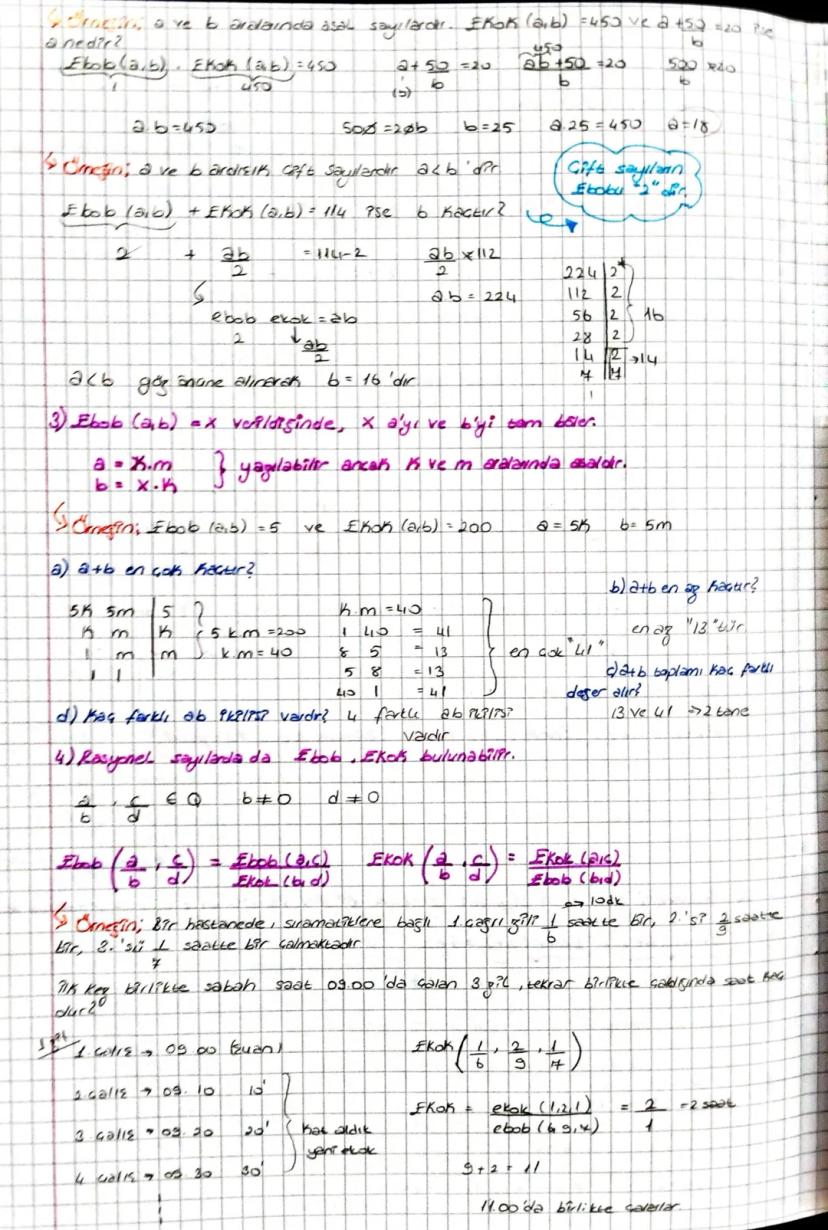 Örneğin; a ve b aralarında asal sayılardır. EKOK (a,b) = 450 ve a + 50/b = 20 ise
a nedir?
Ebob(a,b) . EKOK (a,b) = 450
1 450
a + 50/b = 20
(b)
450
ab+50/b = 20
500/b = 20
a.b = 450
500 = 20b b = 25 a.25 = 450 a = 18
Örneğin; a ve b ardışık çift sayılardır a<b 'dir
Çift sayıların
Ebobu "2" dir.
Ebob (a,b) + EKOK (a,b) = 114 ise b kaçtır?
2 + ab/2 = 114-2 ab/2 = 112
ab = 224
ebob ekok = ab
2 ab/2
224 | 2
112 | 2
56 | 2 16
28 | 2
14 | 2 → 14
7 | 7
1
a<b göz önüne alınarak b = 16 'dır
3) Ebob (a,b) = x verildiğinde, x a'yı ve b'yi tam böler.
a = x.m
b = x.k
} yazılabilir ancak k ve m aralarında asaldır.
Örneğin; Ebob (a,b) = 5 ve EKOK (a,b) = 200 a = 5k b = 5m
a) a+b en çok kaçtır?
5k 5m | 5
k m | k
1 m | m
1 1
5 k m = 200
k.m = 40
k.m = 40
1 40 = 41
8 5 = 13
5 8 = 13
40 1 = 41
en çok "41"
b) a+b en az kaçtır?
en az "13"tür.
c) a+b toplamı kaç farklı
değer alır?
13 ve 41 → 2 tane
d) Kaç farklı ab ikilisi vardır? 4 farklı ab ikilisi
vardır
4) Rasyonel sayılarda da Ebob, EKOK bulunabilir.
a/b , c/d ∈ Q b ≠ 0 d ≠ 0
Ebob (a/b , c/d) = Ebob (a,c)/EKOK (b,d) EKOK (a/b , c/d) = EKOK (a,c)/Ebob (b,d)
→ 10dk
Örneğin; Bir hastanede, sıramatiklere bağlı 1 çağrı zili 1/6 saatte bir, 2.'si 2/9 saatte
bir, 3.'sü 1/7 saatte bir çalmaktadır
İlk kez birlikte sabah saat 09.00 'da çalan 3 zil, tekrar birlikte çaldığında saat kaç
olur?
1 çalış → 09 00
2 çalış → 09.10 10'
3 çalış → 09.20 20'
4 çalış → 09 30 30'
Kat aldık
yani ekok
EKOK (1/6 , 2/9 , 1/7)
EKOK = ekok (1,2,1)/ebob (6,9,7) = 2/1 = 2 saat
9+2 = 11
11.00'da birlikte çalarlar.